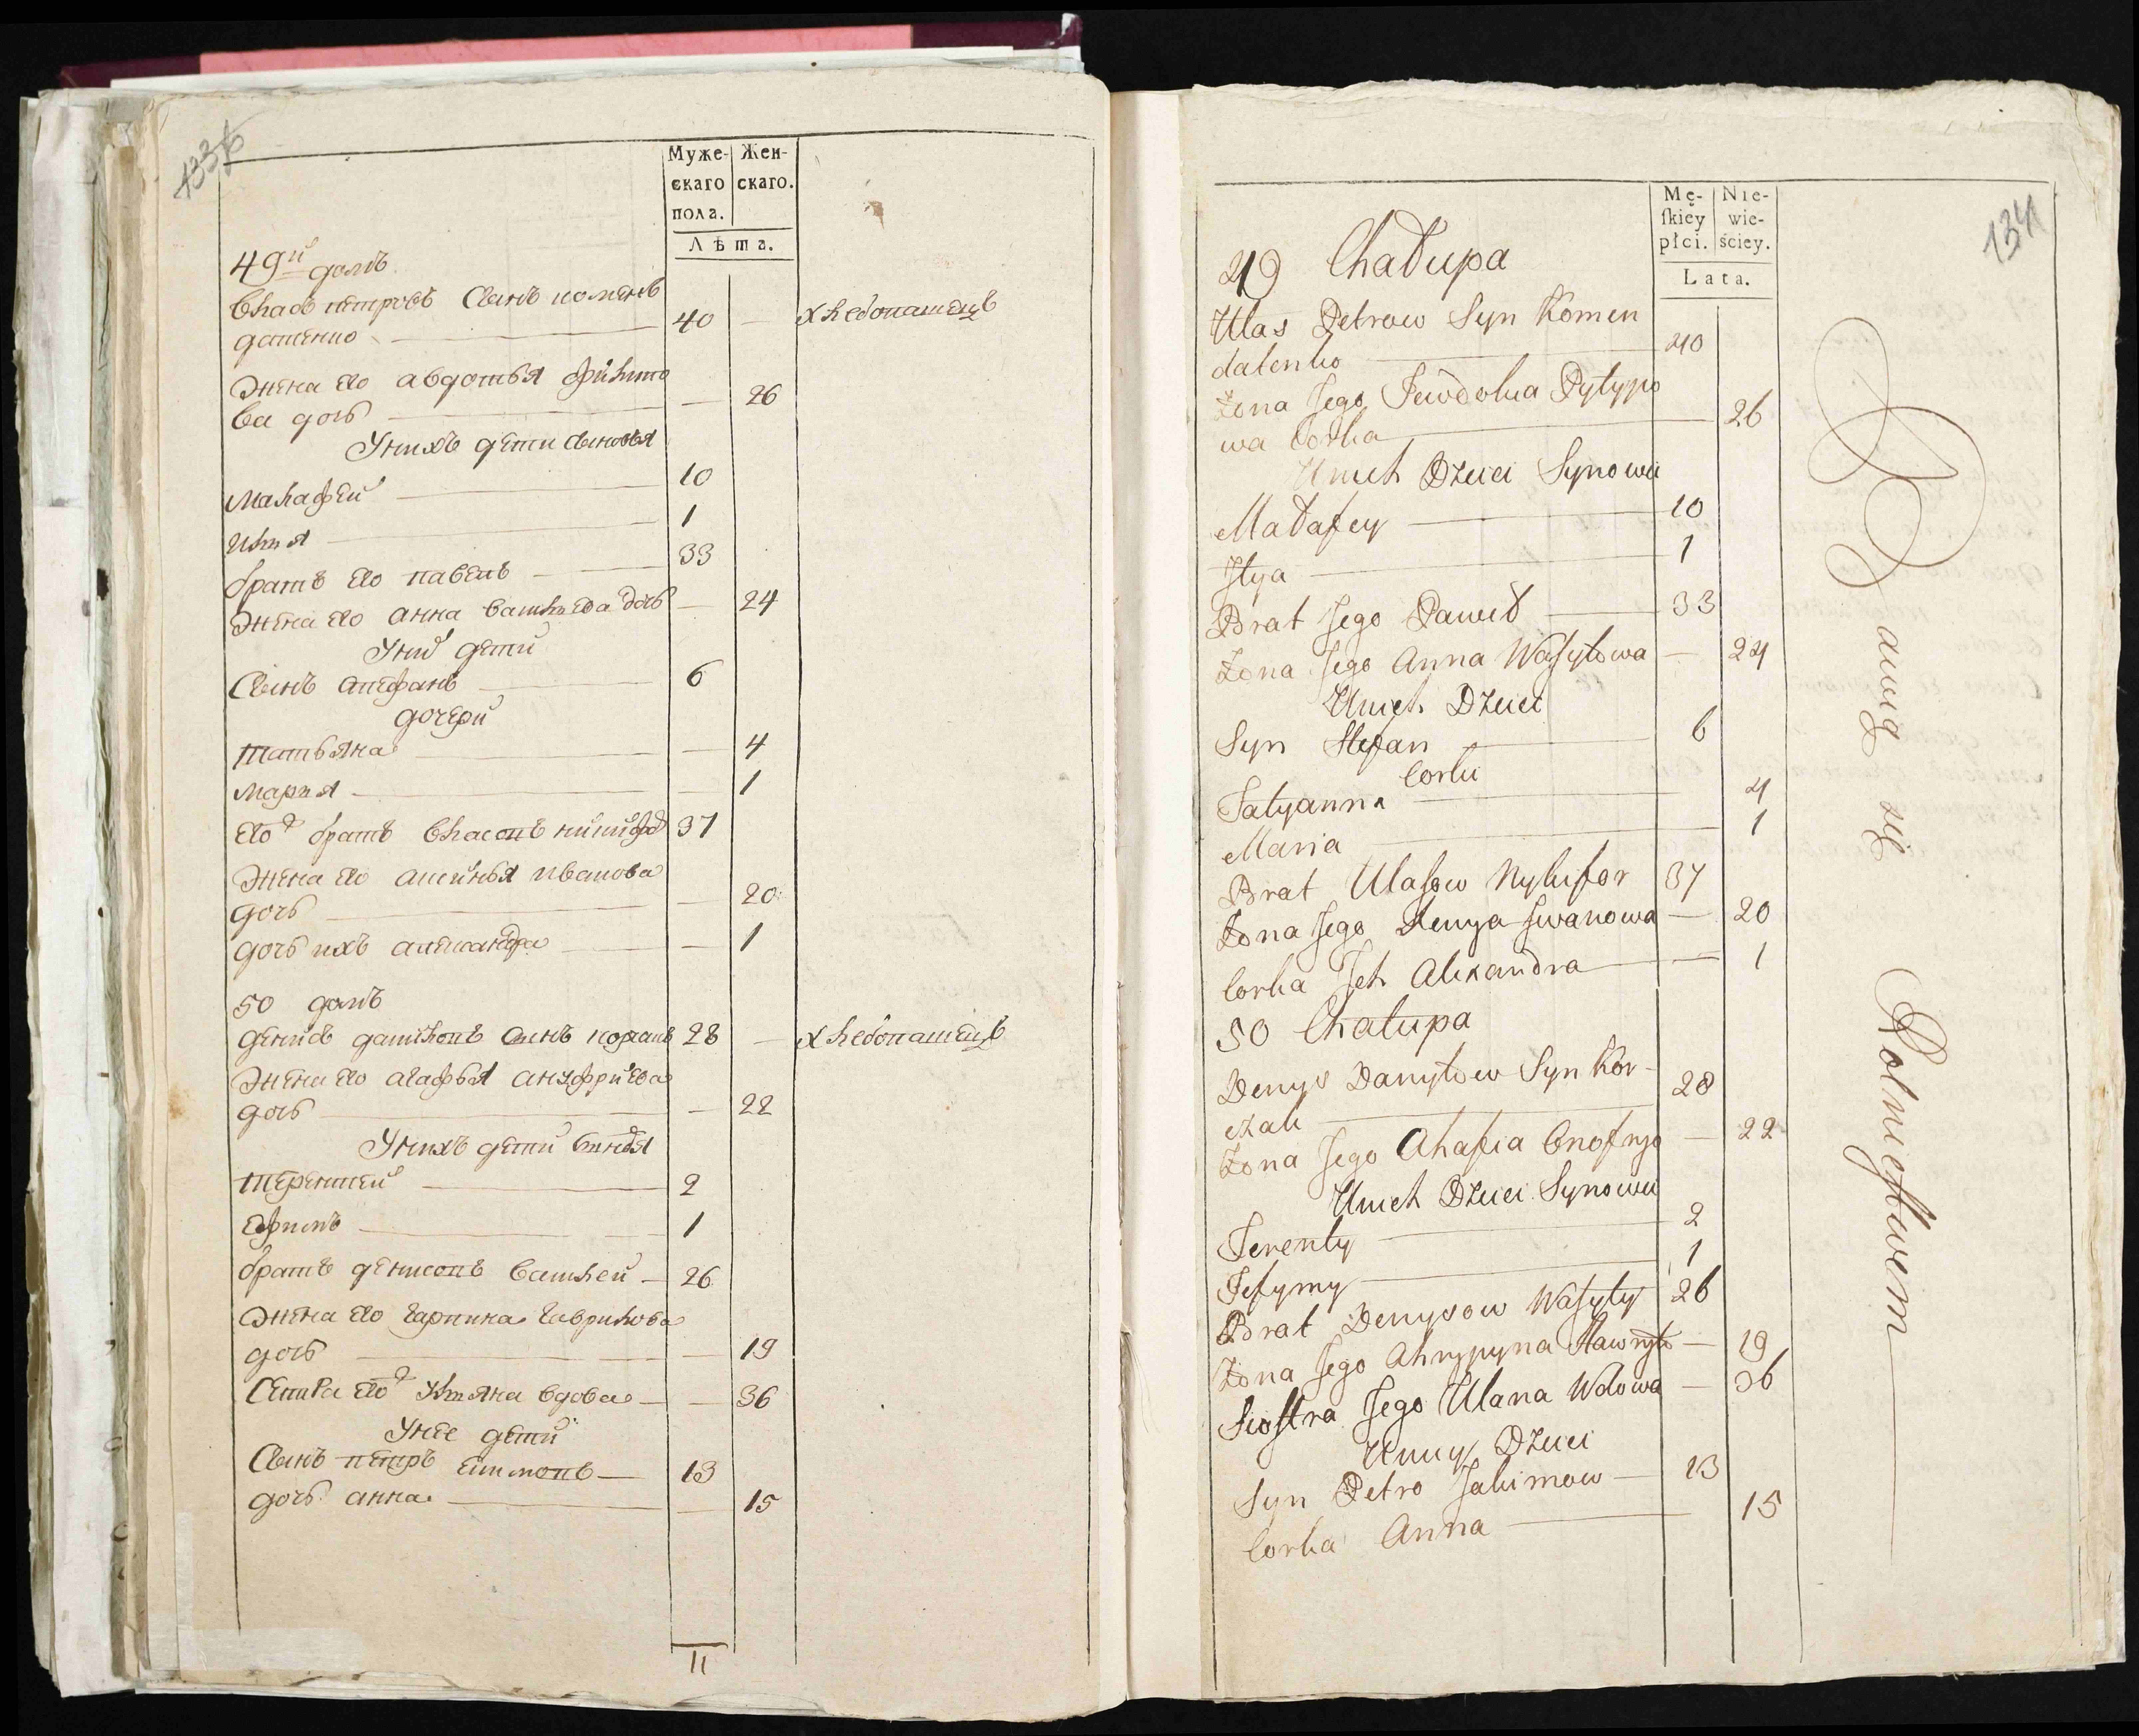 133б
Муже- Жен-
скаго скаго.
пола.
Лѣта.
49й домъ
Власъ петровъ Сынъ коменъ
датенко 40 — хлебопашецъ
Жена его авдотья филипо
ва дочь — 26
У нихъ дети сыновья
Малафей 10
Илья 1
братъ его павелъ 33
Жена его анна васильева дочь — 24
У них дети
Сынъ стефанъ 6
дочери
татьяна — 4
мария — 1
его братъ власовъ никифор 37
Жена его аксинья иванова
дочь — 20
дочь ихъ александра — 1
50 домъ
денисъ даниловъ сынъ коржакъ 28 — хлебопашецъ
Жена его агафья ануфриева
дочь — 22
У нихъ дети сыновья
терентей 2
ефимъ 1
братъ денисовъ василей 26
Жена его гарпина гаврилова
дочь — 19
Сестра его уляна вдова — 36
У нее дети
Сынъ петръ екимовъ 13
дочь анна — 15
11
134
Mę- Nie-
ſkiey wie-
płci. ściey.
Lata.
49 Chałupa
Ulas Petrow Syn Komen
datenko 40
Żona Jego Jewdokia Pylypo
wa Corka 26
Unich Dzieci Synowie
Małafey 10
Ilya 1
Brat Jego Paweł 33
Żona Jego Anna Wasylowa — 24
Unich Dzieci
Syn Stefan 6
Corki
Tatyanna 4
Maria 1
Brat Ulasow Nykifor 37
Żona Jego Xenya Jwanowa — 20
Corka Jch Alexandra — 1
50 Chałupa
Denys Danyłow Syn Kor-
żak 28
Żona Jego Ahafia Onofryo — 22
Unich Dzieci Synowie
Terenty 2
Jefymy 1
Brat Denysow Wasyly 26
Żona Jego Ahrypyna Hawryło — 19
Siostra Jego Ulana Wdowa — 36
Uniey Dzieci
Syn Petro Jakimow — 13
Corka Anna 15
Bawią się Rolnictwem